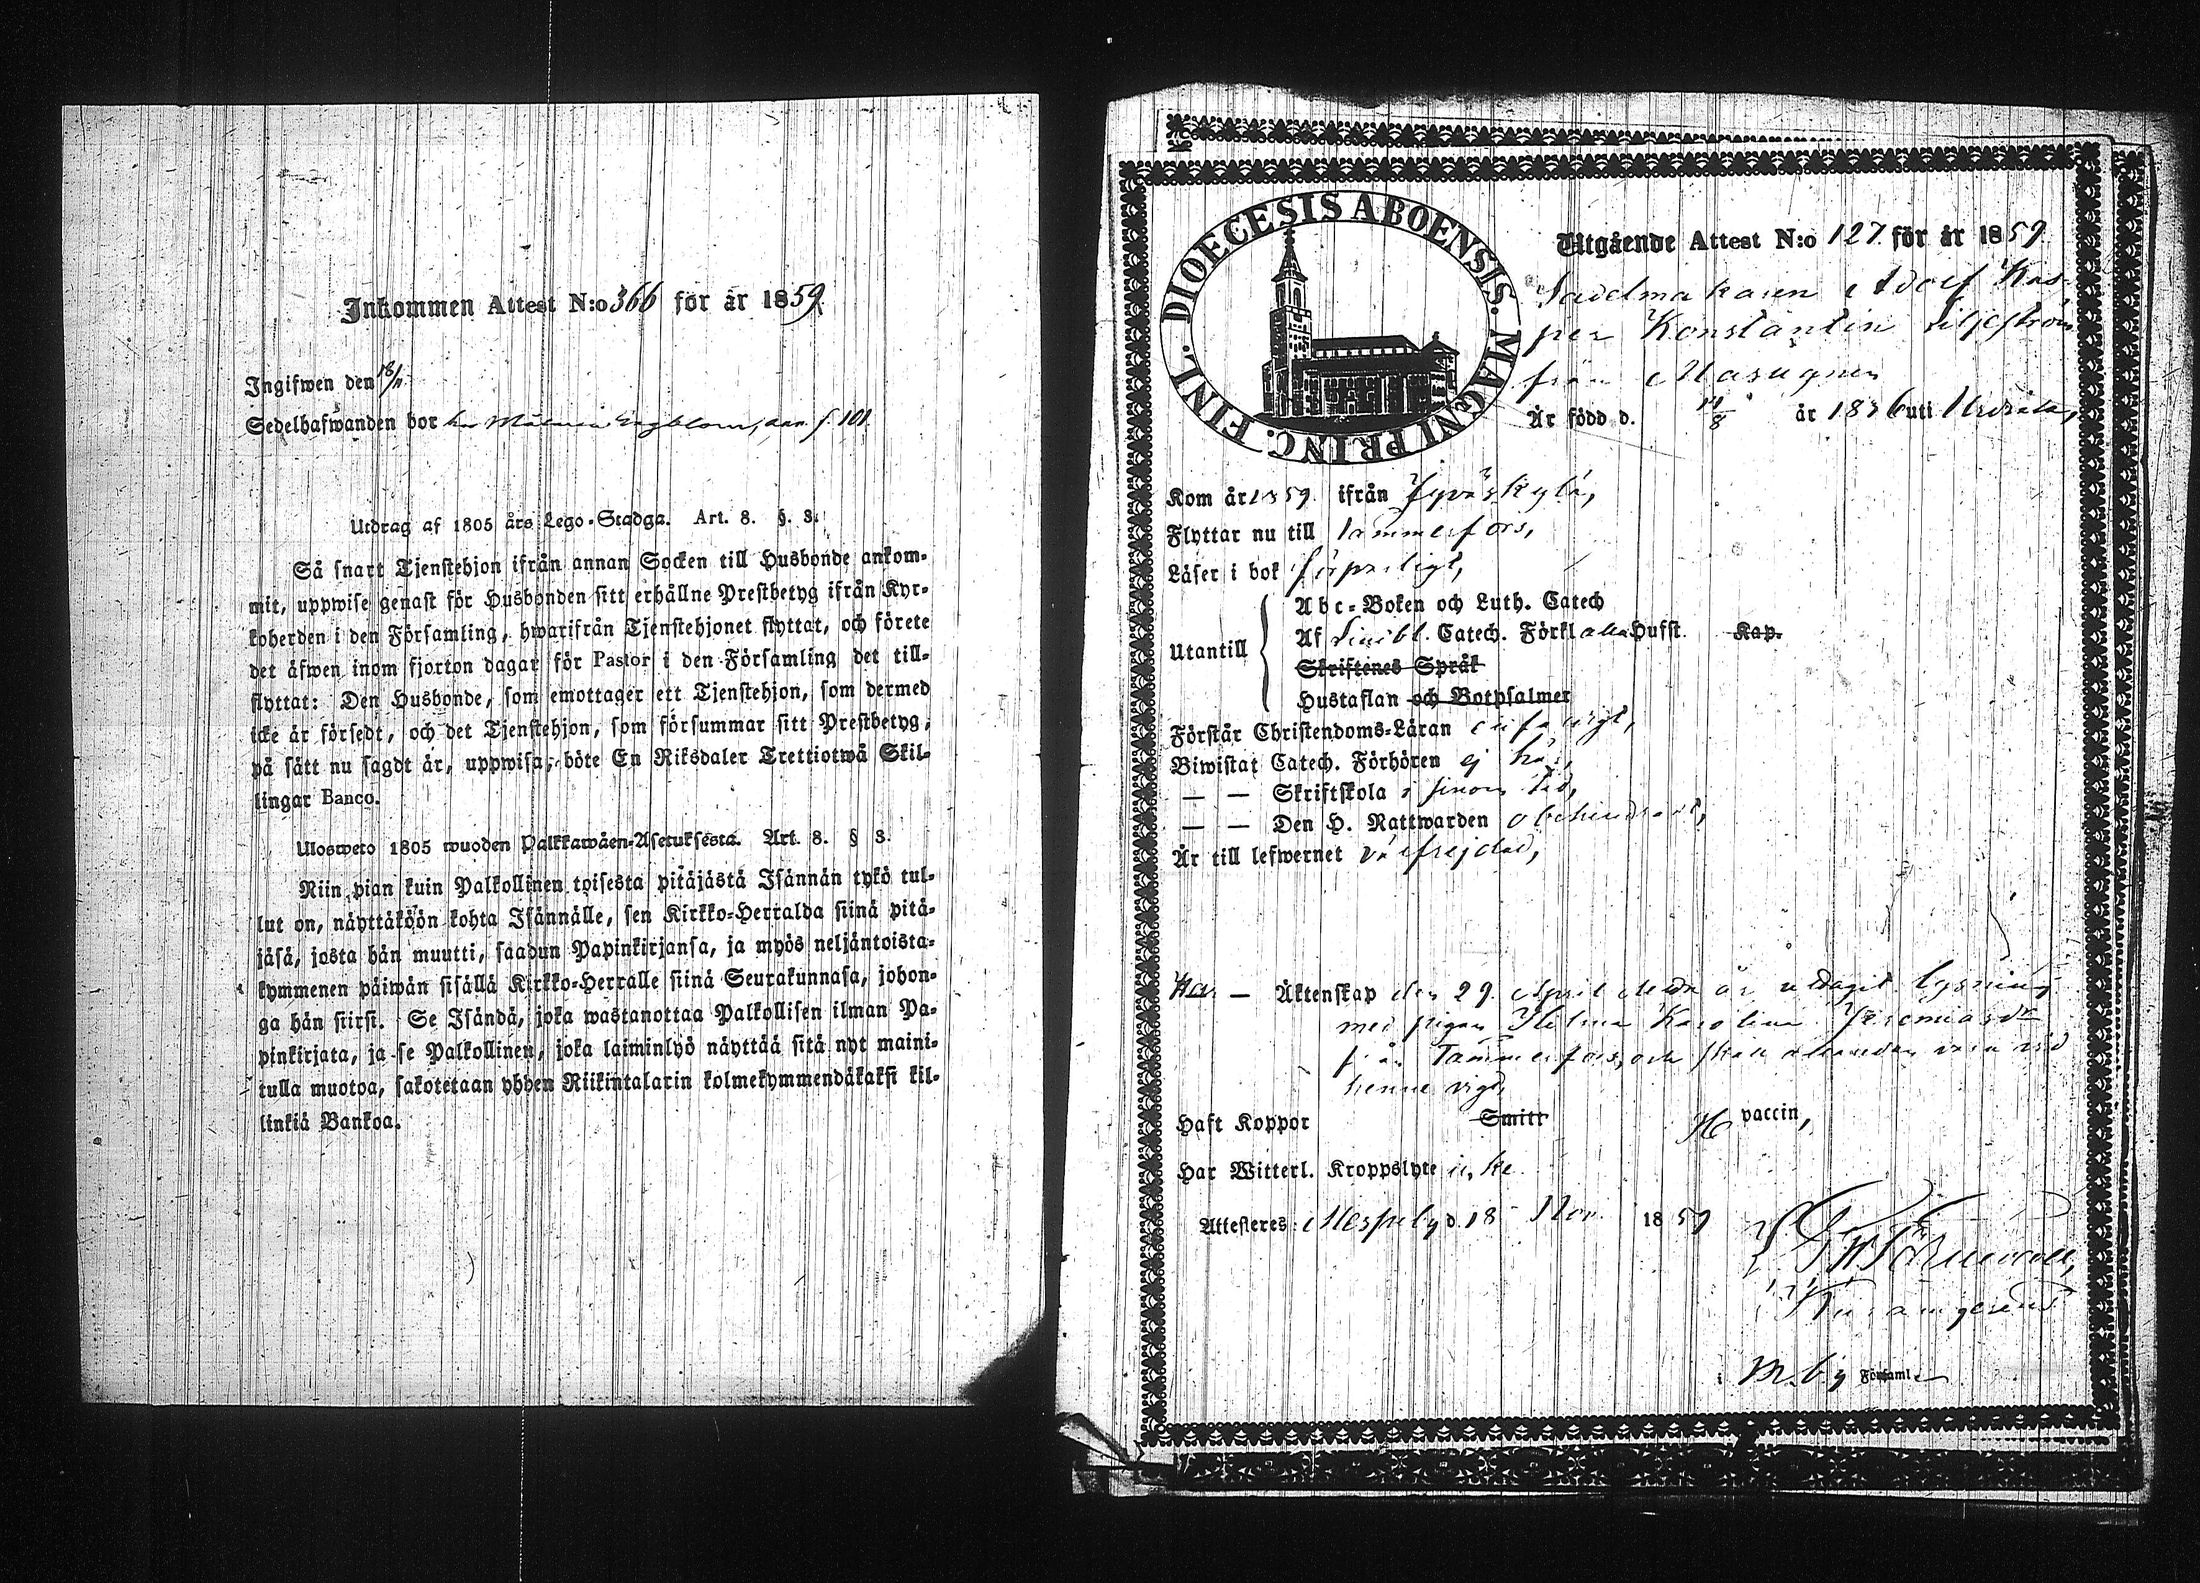 Inkommen Attest N:o 366 för år 1859.
Ingifwen den 18/11.
Sedelhafwanden bor hos Målaren Engblom, 101.
Utdrag af 1805 års Lego-Stadga. Art. 8. §. 3.
Så snart Tjenstehjon ifrån annan Socken till Husbonde ankom-
mit, uppwise genast för Husbonden sitt erhållne Prestbetyg ifrån Kyr-
koherden i den Församling, hwarifrån Tjenstehjonet flyttat, och förete
det äfwen inom fjorton dagar för Pastor i den Församling det till-
flyttat: Den Husbonde, som emottager ett Tjenstehjon, som dermed
icke är försedt, och det Tjenstehjon, som försummar sitt Prestbetyg,
på sätt nu sagdt är, uppwisa, böte En Riksdaler Trettiotwå Skil-
lingar Banco.
Ulosweto 1805 wuoden Palkkawäen-Asetuksesta. Art. 8. § 3.
Niin pian kuin Palkollinen toisesta pitäjästä Isännän tykö tul-
lut on, näyttäköön kohta Isännälle, sen Kirkko-Herralda siinä pitä-
jäsä, josta hän muutti, saadun Papinkirjansa, ja myös neljäntoista-
kymmenen päiwän sisällä Kirkko-Herralle siinä Seurakunnasa, johon-
ga hän siirsi. Se Isändä, joka wastanottaa Palkollisen ilman Pa-
pinkirjata, ja se Palkollinen, joka laiminlyö näyttää sitä nyt maini-
tulla muotoa, sakotetaan yhden Riikintalarin kolmekymmendäkaksi kil-
linkiä Bankoa.
DIOECESIS ABOENSIS. MAGNI PRINC. FINL.
Utgående Attest N:o 127 för år 1859
Sadelmakaren Adolf Kas-
per Konstantin Liljeström
från Masugnen
Är född d. 14/8 år 1836 uti Urdiala,
Kom år 1859 ifrån Jyväskylä,
Flyttar nu till Tammerfors,
Läser i bok försvarligt,
Utantill
Abc-Boken och Luth. Catech
Af Catech. Förkl alla Hufst. Kap.
Skriftenes Språk
Hustaflan och Botpsalmer
Förstår Christendoms-Läran enfaldigt,
Biwistat Catech. Förhören ej här,
— — Skriftskola i sinom tid,
— — Den H. Nattwarden obehindradt,
Är till lefwernet välfrejdad,
Har — Äktenskap den 29 April uttagit lysning
med pigan Karolina
från Tammerfors, och skall vara vid
henne vigd,
Haft Koppor Smitt vaccin,
Har Witterl. Kroppslyte icke
Attesteras: Messuby d. 18 Nov. 1859
i M.by Förfaml.